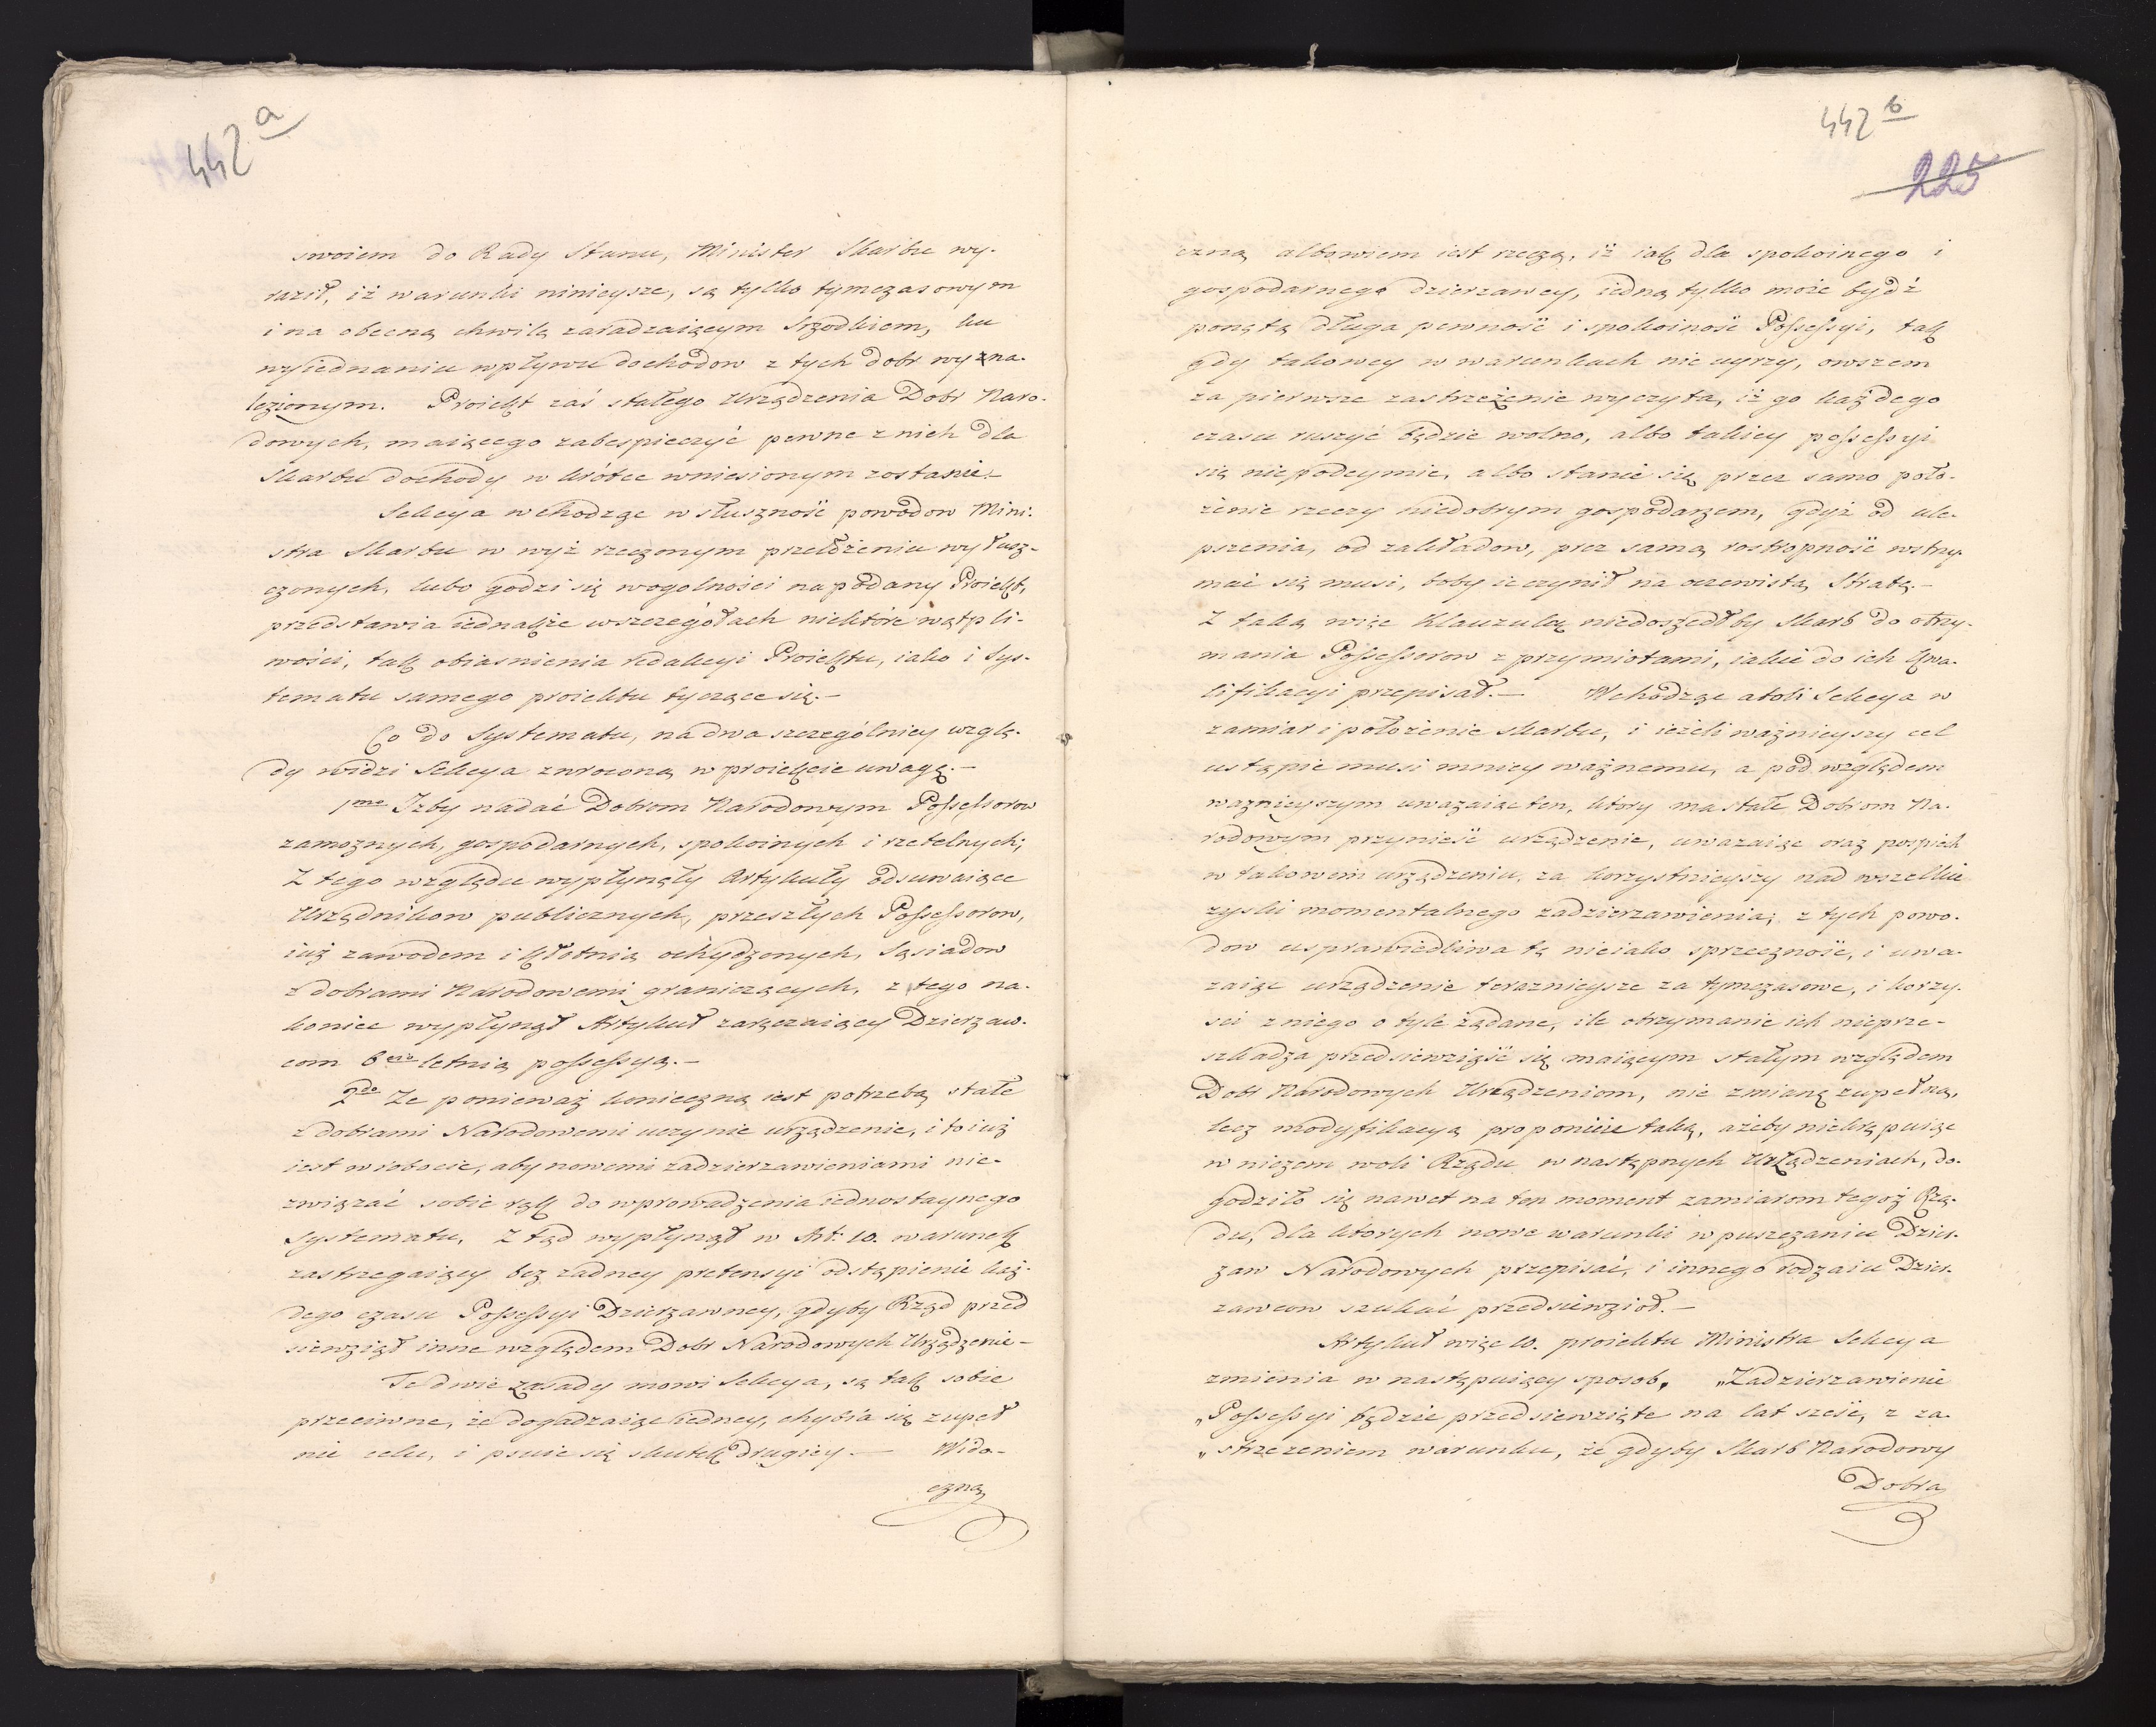 442 a
swoiem do Rady Stanu, Minister Skarbu wy-
raził, iż warunki ninieysze, są tylko tymczasowym
i na obecną chwilę zaradzaiącym srzodkiem, ku
wyiednaniu wpływu dochodow z tych dobr wyna-
lezionym. Proiekt zaś stałego Urządzenia Dobr Naro-
dowych, maiącego zabespieczyć pewne z nich dla
Skarbu dochody w krótce wniesionym zostanie.-
Sekcya wchodząc w słuszność powodow Mini-
stra Skarbu w wyż rzeczonym przełożeniu wyłusz-
czonych, lubo godzi się wogolności na podany Proiekt,
przedstawia iednakże w szczegółach niektóre wątpli-
wości, tak obiasnienia redakcyi Proiektu, iako i Sys-
tematu samego proiektu tyczące się.-
Co do Systematu, na dwa szczególniey wzglę-
dy widzi Sekcya zwroconą w proiekcie uwagę.-
1mo Iżby nadać Dobrom Narodowym Possessorow
zamoznych, gospodarnych, spokoinych i rzetelnych;
Z tego względu wypłynęły Artykuły odsuwaiące
Urzędnikow publicznych, przeszłych Possessorow,
iuż zawodem i kłotnią ochydzonych, Sąsiadow
z dobrami Narodowemi graniczących, z tego na-
koniec wypłynął Artykuł zaręczaiący Dzierzaw-
com 6cio letnią possessyą.-
2do Ze ponieważ konieczną iest potrzebą stałe
z dobrami Narodowemi uczynie urządzenie, i to iuż
iest w robocie, aby nowemi zadzierzawieniami nie-
związać sobie rąk do wprowadzenia iednostaynego
Systematu, Z tąd wypłynął w Art: 10. warunek
zastrzegaiący bez zadney pretensyi odstąpienie każ-
dego czasu Possessyi Dzierzawney, gdyby Rząd przed
siewziął inne względem Dobr Narodowych Urządzenie-
Te dwie zasady mowi Sekcya, są tak sobie
przeciwne, że dogadzaiąc iedney, chybia się zupeł
nie celu, i psuie się skutek drugiey.- Wido-
czną
442 b
225
czną albowiem iest rzeczą, iż iak dla spokoinego i
gospodarnego dzierzawcy, iedną tylko może bydź
ponętą długa pewność i spokoiność Possessyi, tak
gdy takowey w warunkach nie uyrzy, owszem
za pierwsze zastrzeżenie wyczyta, iż go każdego
czasu ruszyć będzie wolno, albo takiey possessyi
się niepodeymie, albo stanie się przez samo poło-
żenie rzeczy niedobrym gospodarzem, gdyż od ule-
pszenia, od zakładow, prez samą rostropność wstrzy-
mać się musi, boby ie czynił na oczewistą Stratę.-
Z taką więc Klauzulą niedoszedłby Skarb do otrzy-
mania Possessorow z przymiotami, iakie do ich kwa-
lifikacyi przepisał.- Wchodząc atoli Sekcya w
zamiar i położenie Skarbu, i ieżeli ważnieyszy cel
ustąpić musi mniey ważnemu, a pod względem
waznieyszym uwazaiąc ten, ktory ma stałe Dobrom Na-
rodowym przynieść urządzenie, uwazaiąc oraz pospiech
w takowem urządzeniu, za korzystnieyszy nad wszelkie
zyski momentalnego zadzierzawienia; z tych powo-
dow usprawiedliwa tę nieiako sprzeczność, i uwa-
zaiąc urządzenie teraznieysze za tymczasowe, i korzy-
ści z niego o tyle żądane, ile otrzymanie ich nieprze-
szkadza przedsiewziąść się maiącym stałym względem
Dobr Narodowych Urządzeniom, nie zmianę zupełną,
lecz modyfikacyą proponuie taką, ażeby niekrępuiąc
w niczem woli Rządu w następnych Urządzeniach, do-
godziło się nawet na ten moment zamiarom tegoż Rzą-
du, dla ktorych nowe warunki w puszczaniu Dzier-
zaw Narodowych przepisać, i innego rodzaiu Dzier-
zawcow szukać przedsiewzioł.-
Artykuł więc 10. proiektu Ministra Sekcya
zmienia w następuiący sposob, „Zadzierzawienie
„Possessyi będzie przedsiewzięte na lat sześć, z za-
„strzezeniem warunku, że gdyby Skarb Narodowy
Dobra